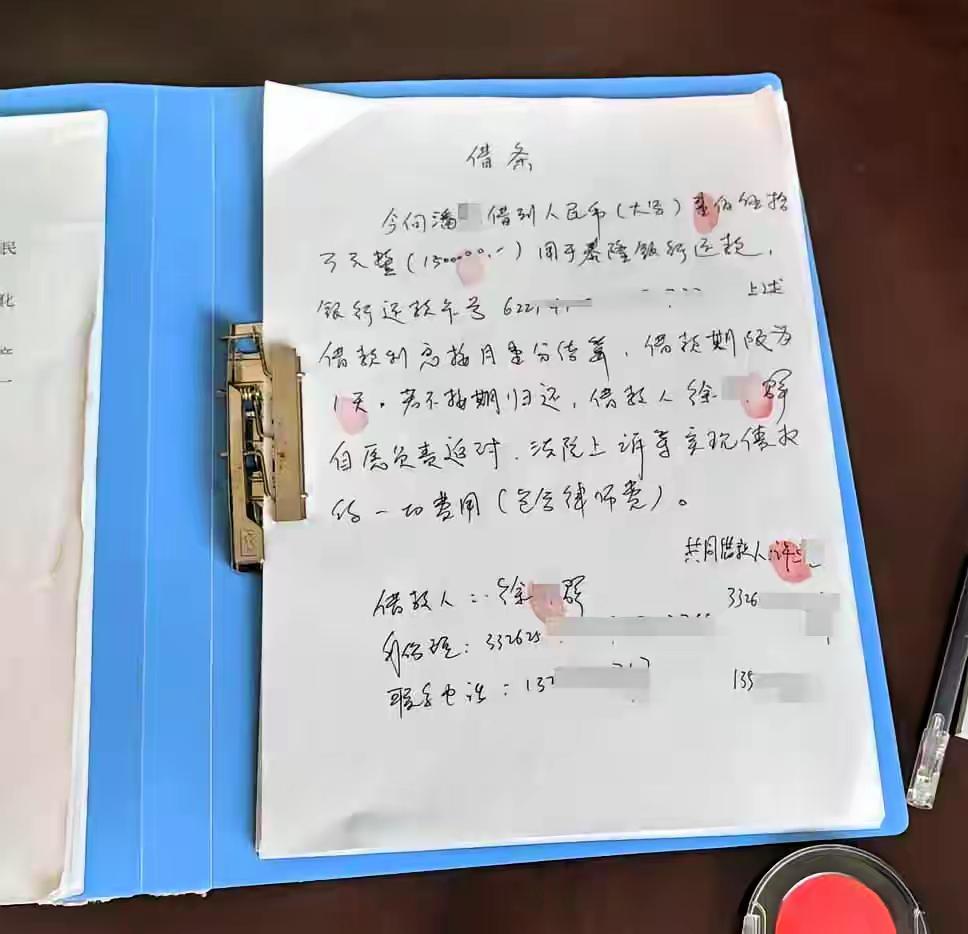 民
化
借条
今向潘 借到人民币(大写)壹佰伍拾
万元整(1500000.-)用于泰隆银行还款,
银行还款卡号622 上述
借款利息按月壹分结算,借款期限为
1天。若不按期归还,借款人徐 群
自愿负责追讨、法院上诉等实现债权
的一切费用(包含律师费)。
共同借款人:许
借款人:徐 群 3326
身份证:332625
联系电话:137 135